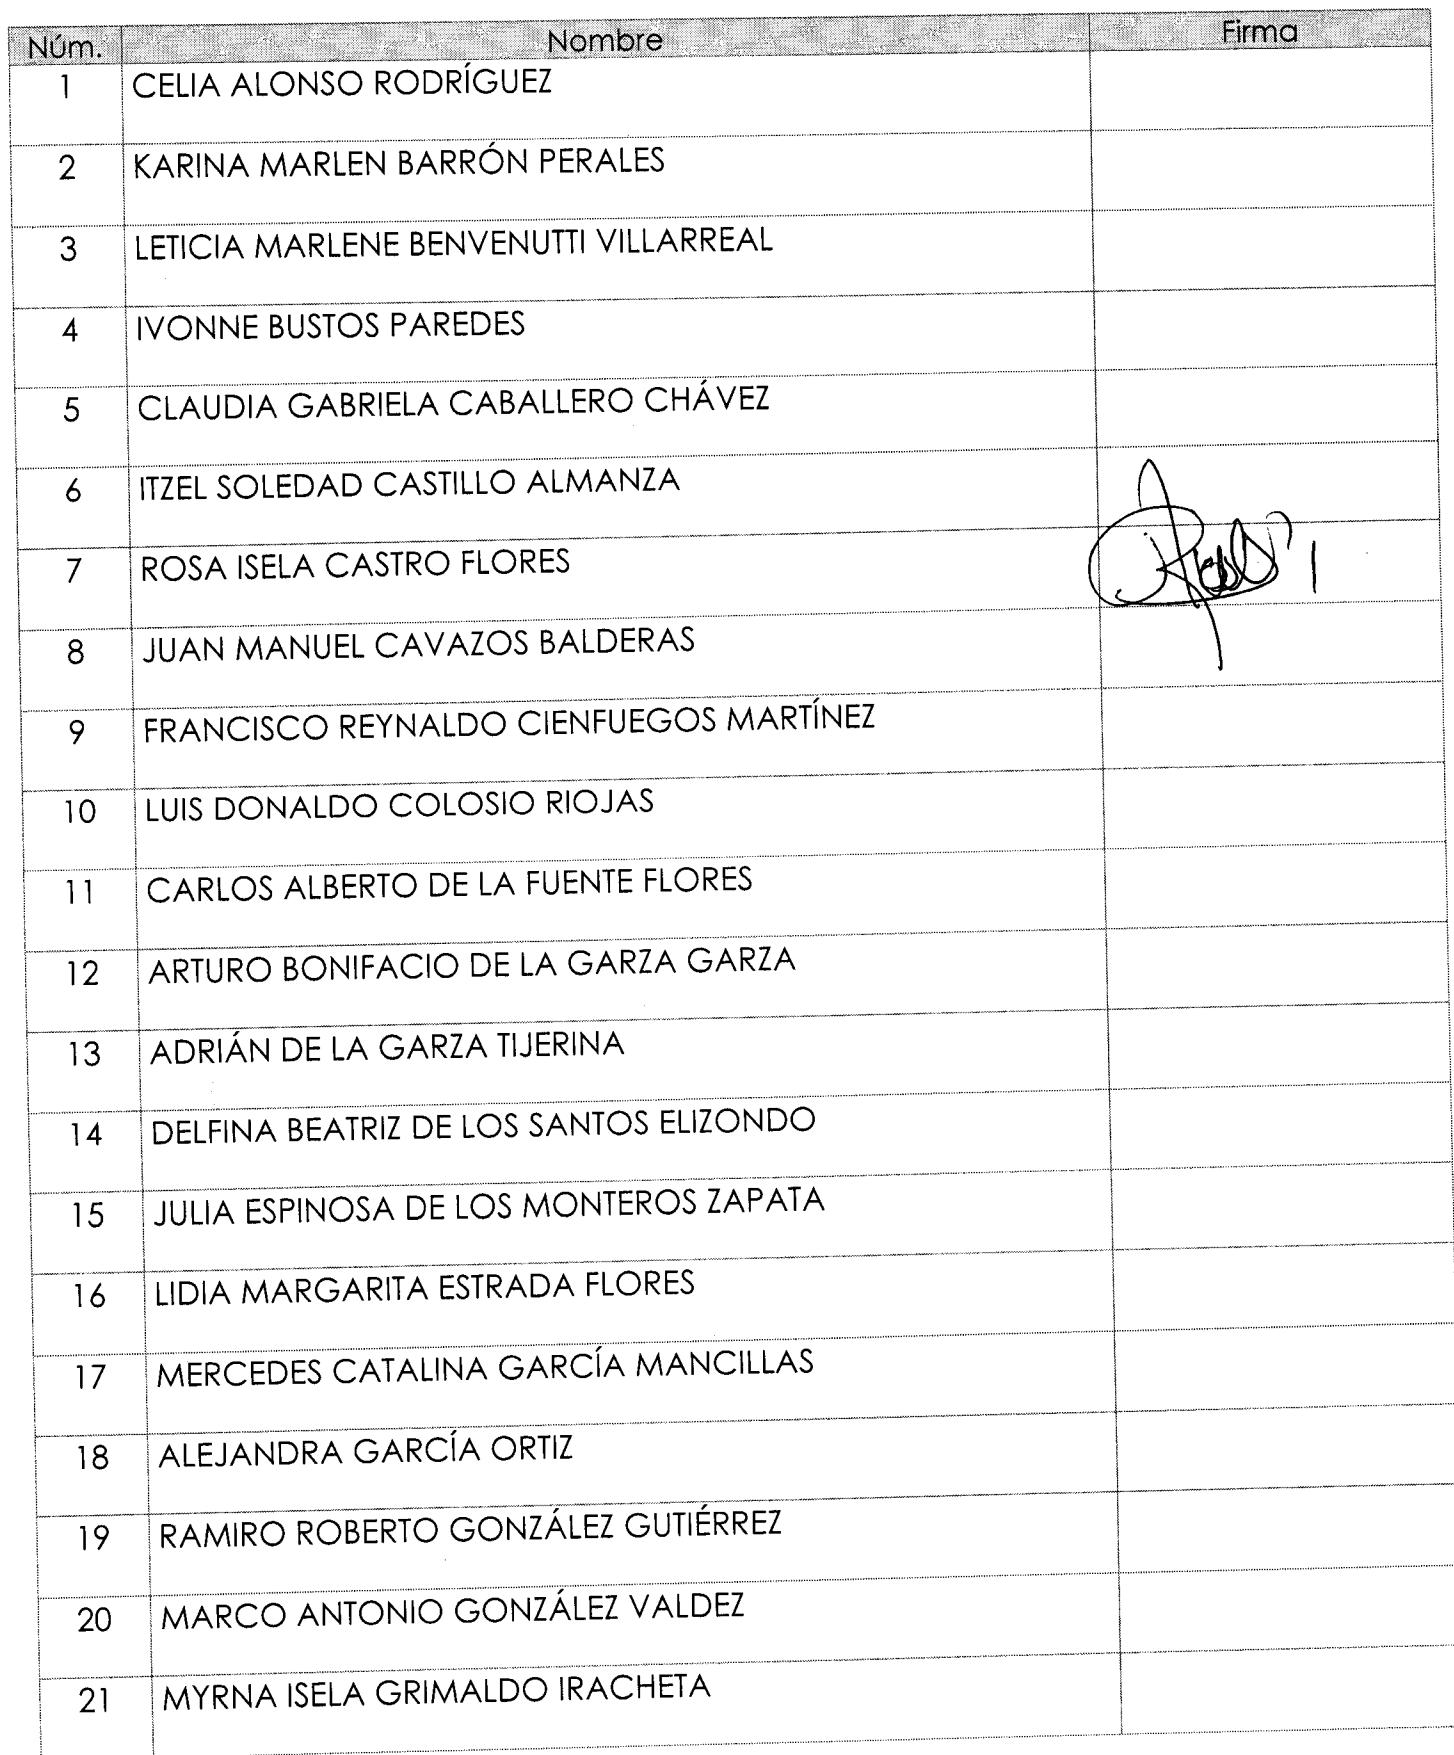 Núm. Nombre Firma
1 CELIA ALONSO RODRÍGUEZ
2 KARINA MARLEN BARRÓN PERALES
3 LETICIA MARLENE BENVENUTTI VILLARREAL
4 IVONNE BUSTOS PAREDES
5 CLAUDIA GABRIELA CABALLERO CHÁVEZ
6 ITZEL SOLEDAD CASTILLO ALMANZA
7 ROSA ISELA CASTRO FLORES
8 JUAN MANUEL CAVAZOS BALDERAS
9 FRANCISCO REYNALDO CIENFUEGOS MARTÍNEZ
10 LUIS DONALDO COLOSIO RIOJAS
11 CARLOS ALBERTO DE LA FUENTE FLORES
12 ARTURO BONIFACIO DE LA GARZA GARZA
13 ADRIÁN DE LA GARZA TIJERINA
14 DELFINA BEATRIZ DE LOS SANTOS ELIZONDO
15 JULIA ESPINOSA DE LOS MONTEROS ZAPATA
16 LIDIA MARGARITA ESTRADA FLORES
17 MERCEDES CATALINA GARCÍA MANCILLAS
18 ALEJANDRA GARCÍA ORTIZ
19 RAMIRO ROBERTO GONZÁLEZ GUTIÉRREZ
20 MARCO ANTONIO GONZÁLEZ VALDEZ
21 MYRNA ISELA GRIMALDO IRACHETA